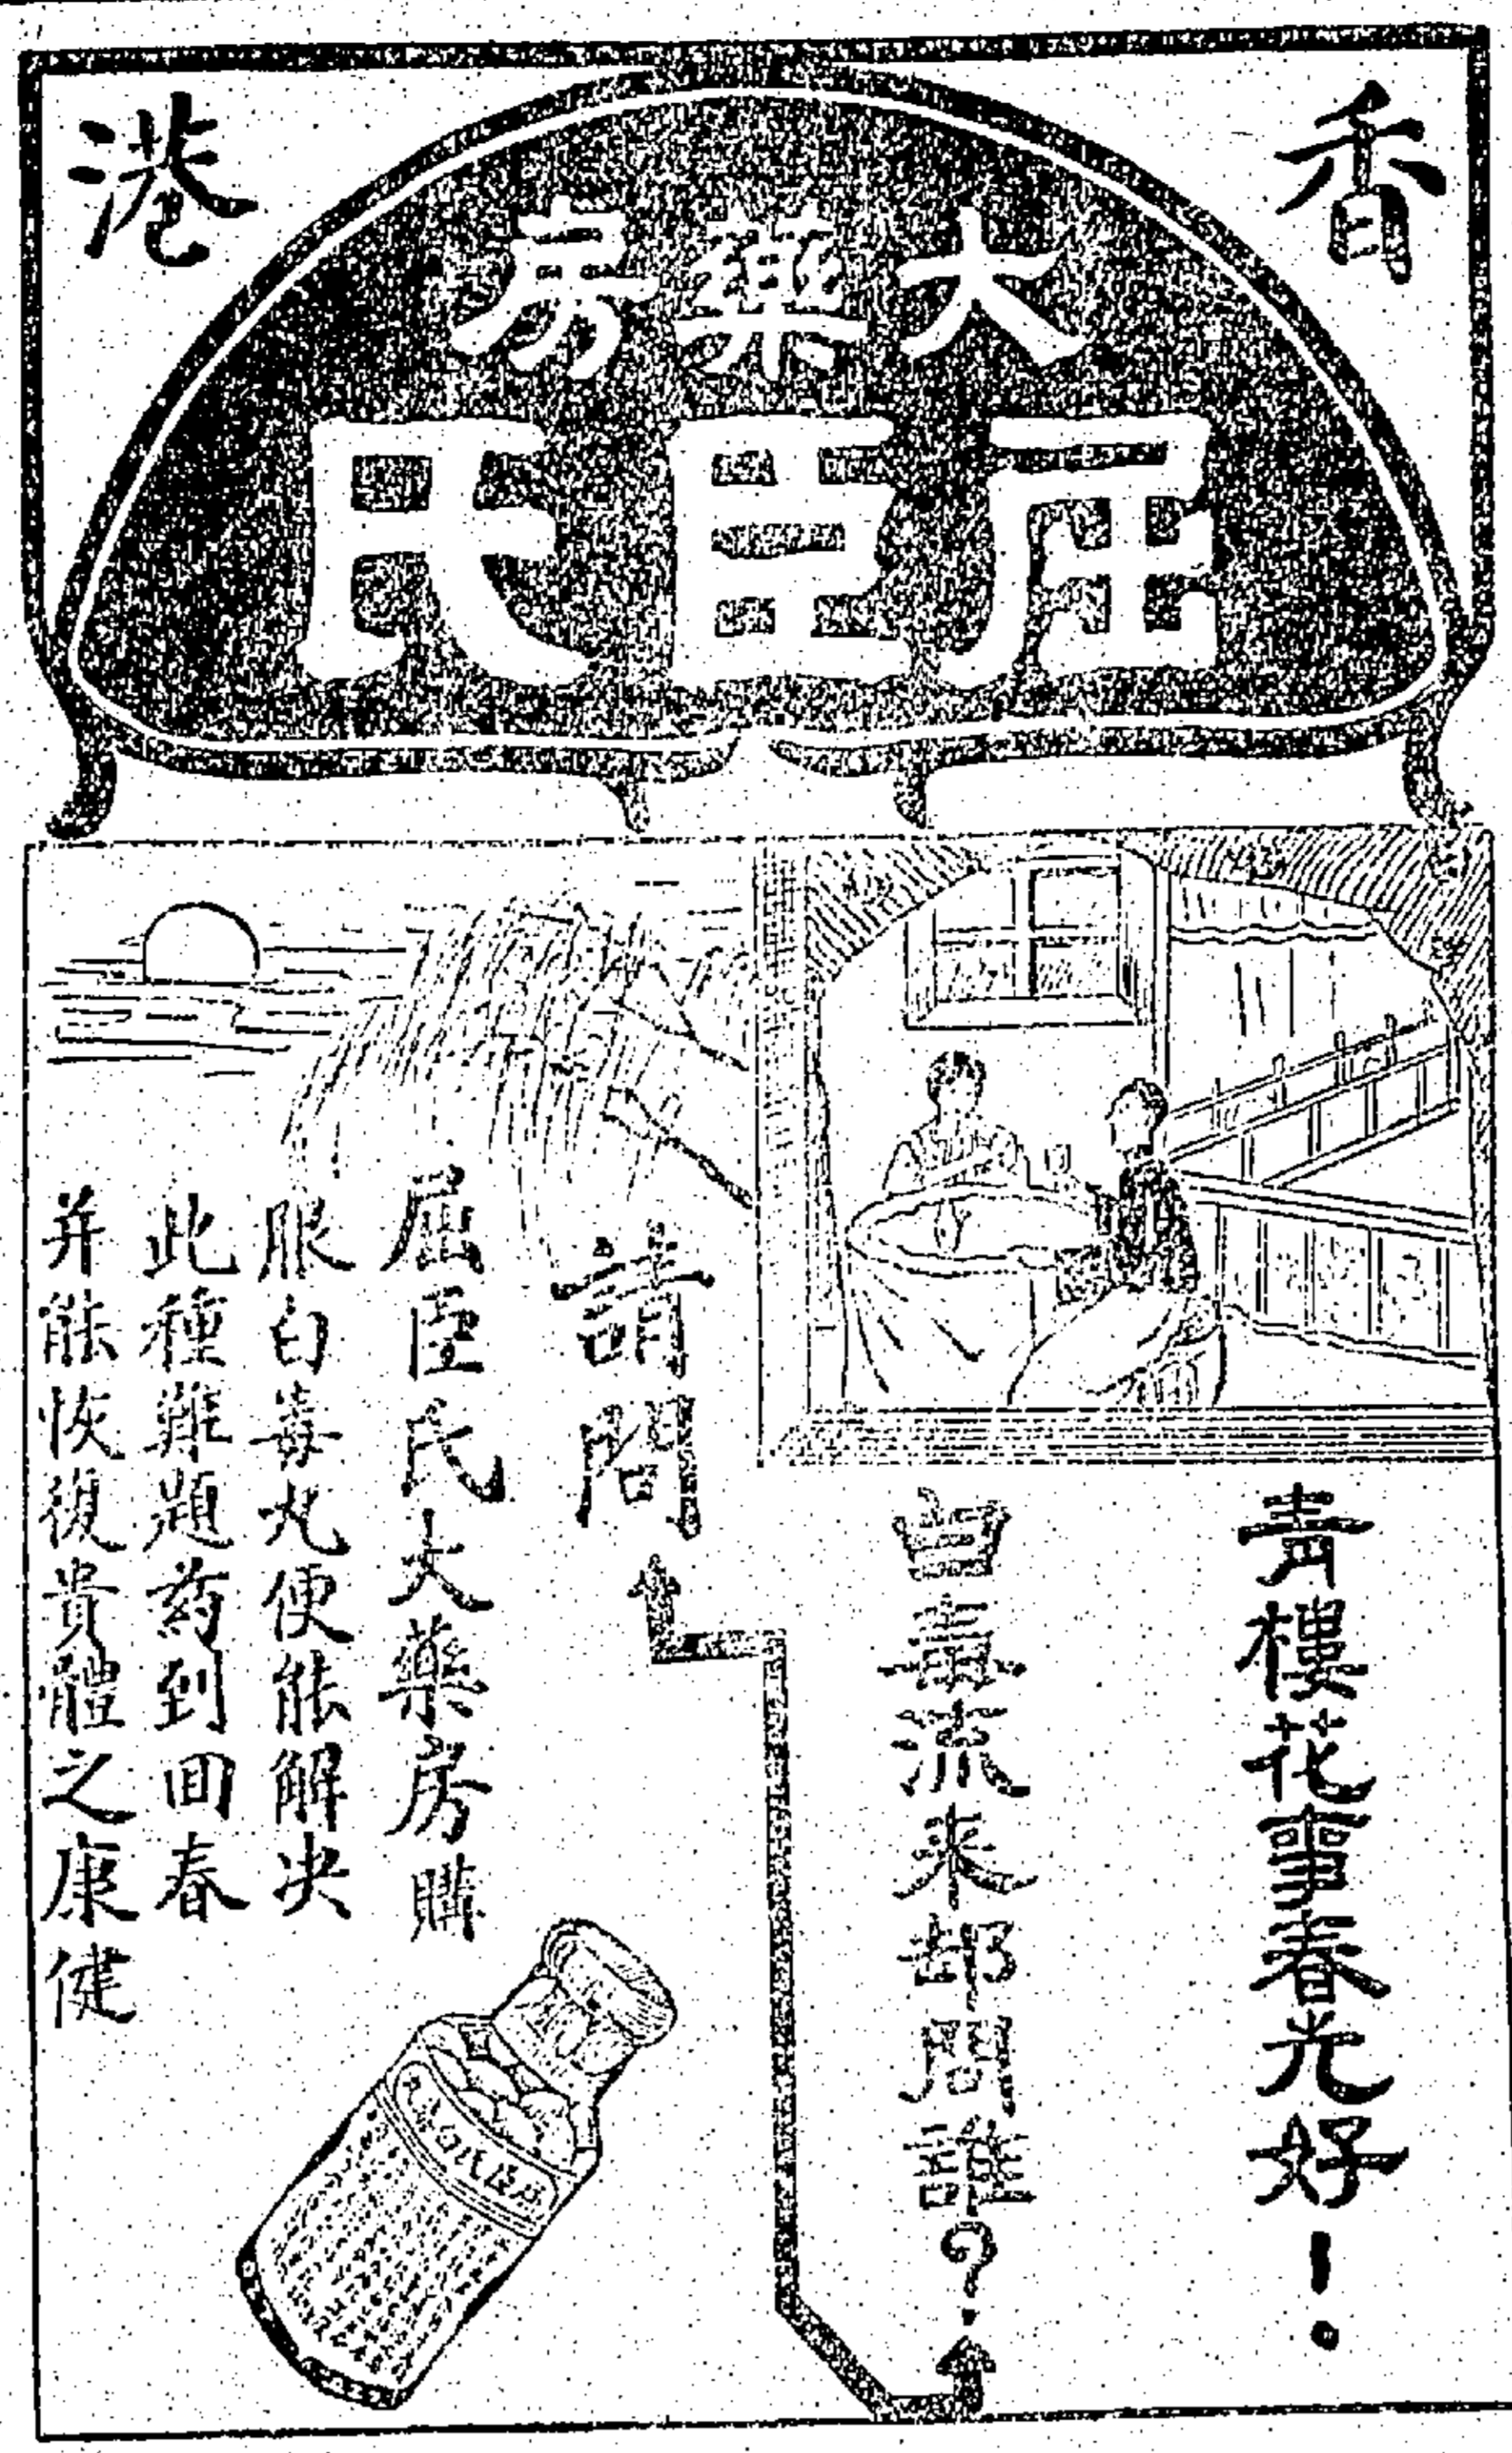 香港
屈臣氏
大藥房
青樓花事春光好！
白毒流来却問誰？
請問
屈臣氏大藥房購
服白毒丸便能解决
此種難題药到回春
并能恢復貴體之康健